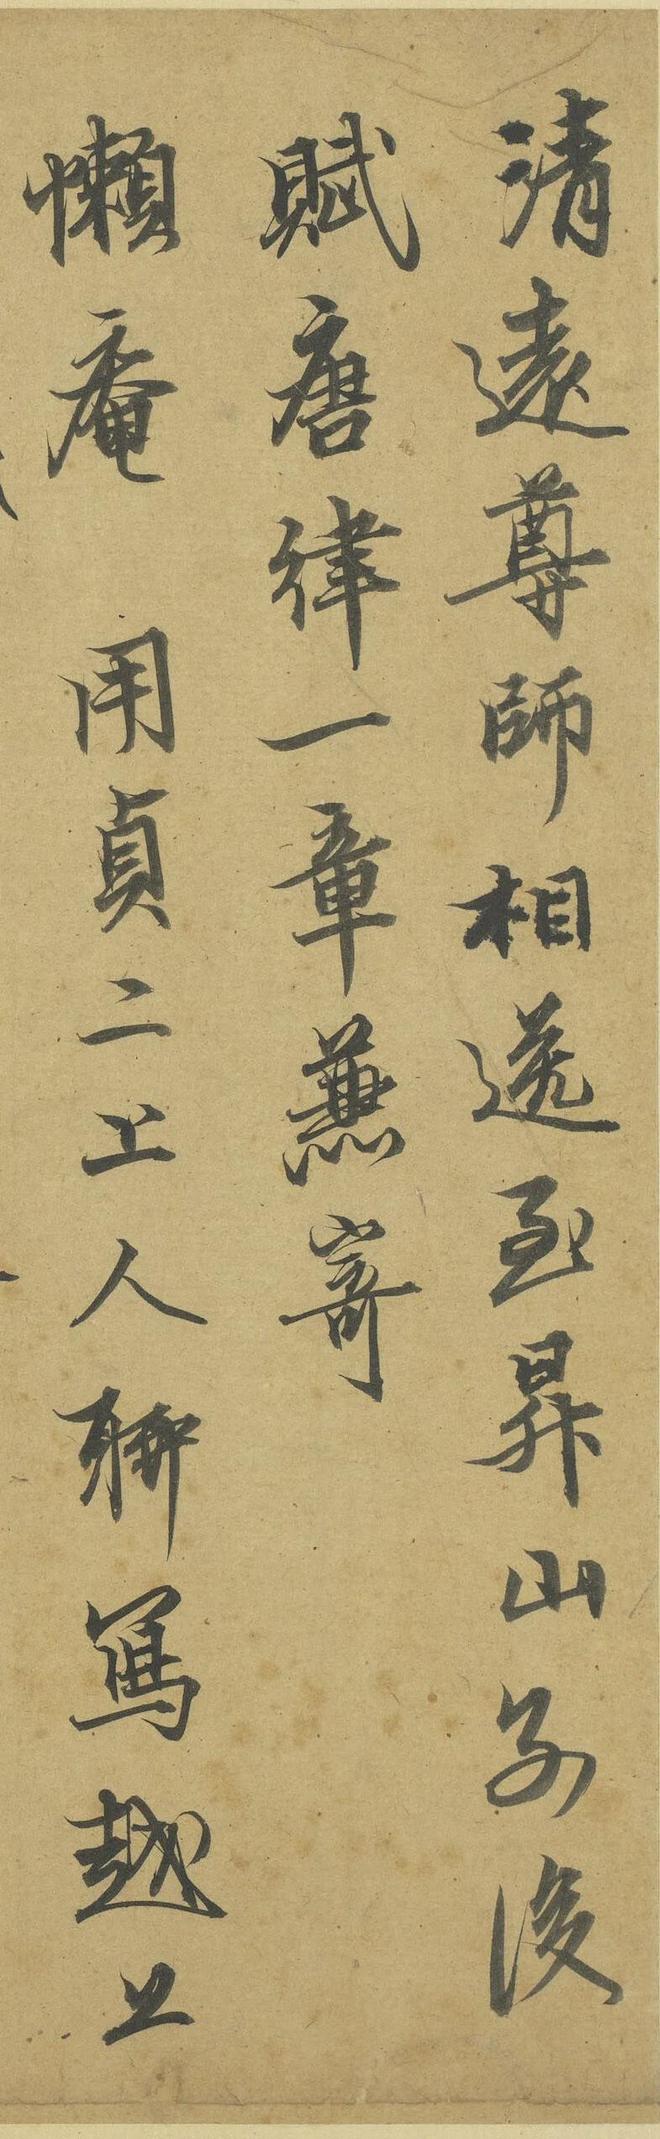 清遠尊師相送至昇山别後
賦唐律一章兼寄
懶庵 用貞二上人聊寫越上